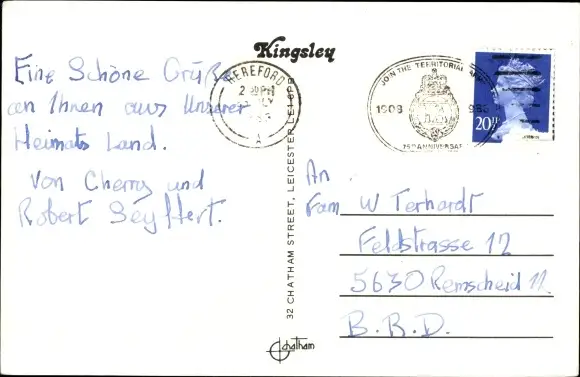 Kingsley
Eine Schöne Grüße
an Ihnen aus Unserer
Heimats Land.
Von Cherry und
Robert Seyffert.
HEREFORD
JOIN THE TERRITORIAL ARMY
1908
75TH ANNIVERSARY
20P
32 CHATHAM STREET, LEICESTER
An
Fam W Terhardt
Feldstrasse 12
5630 Remscheid 11
B.R.D.
Chatham